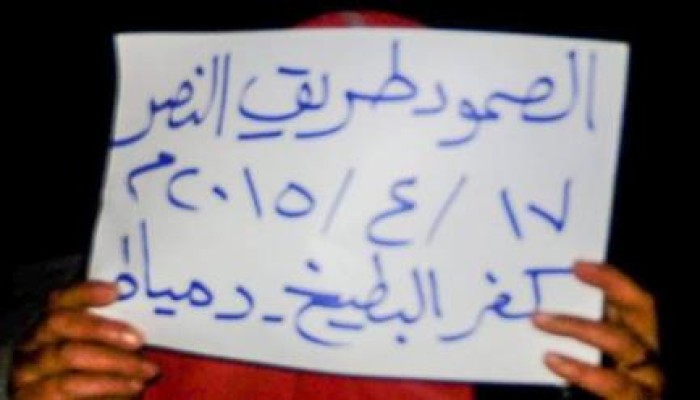 الصمود طريق النصر
١٧ / ٤ / ٢٠١٥م
كفر البطيخ - دمياط